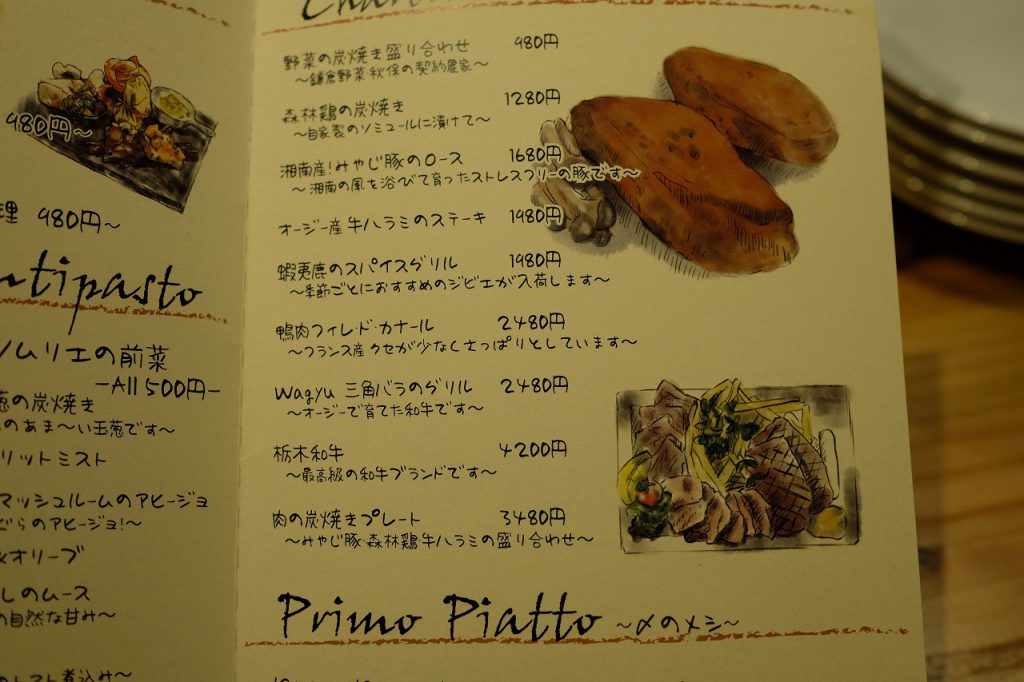 980円~
理 980円~
ntipasto
ソムリエの前菜
-All 500円-
葱の炭焼き
のあま~い玉葱です~
リットミスト
マッシュルームのアヒージョ
ぐらのアヒージョ!~
オリーブ
しのムース
の自然な甘み~
野菜の炭焼き盛り合わせ 980円
~鎌倉野菜・秋保の契約農家~
森林鶏の炭焼き 1280円
~自家製のソミュールに漬けて~
湘南産!みやじ豚のロース 1680円
~湘南の風を浴びて育ったストレスフリーの豚です~
オージー産牛ハラミのステーキ 1980円
蝦夷鹿のスパイスグリル 1980円
~季節ごとにおすすめのジビエが入荷します~
鴨肉フィレ・ド・カナール 2480円
~フランス産クセが少なくさっぱりとしています~
Wagyu 三角バラのグリル 2480円
~オージーで育てた和牛です~
栃木和牛 4200円
~最高級の和牛ブランドです~
肉の炭焼きプレート 3480円
~みやじ豚・森林鶏牛ハラミの盛り合わせ~
Primo Piatto ~〆のメシ~